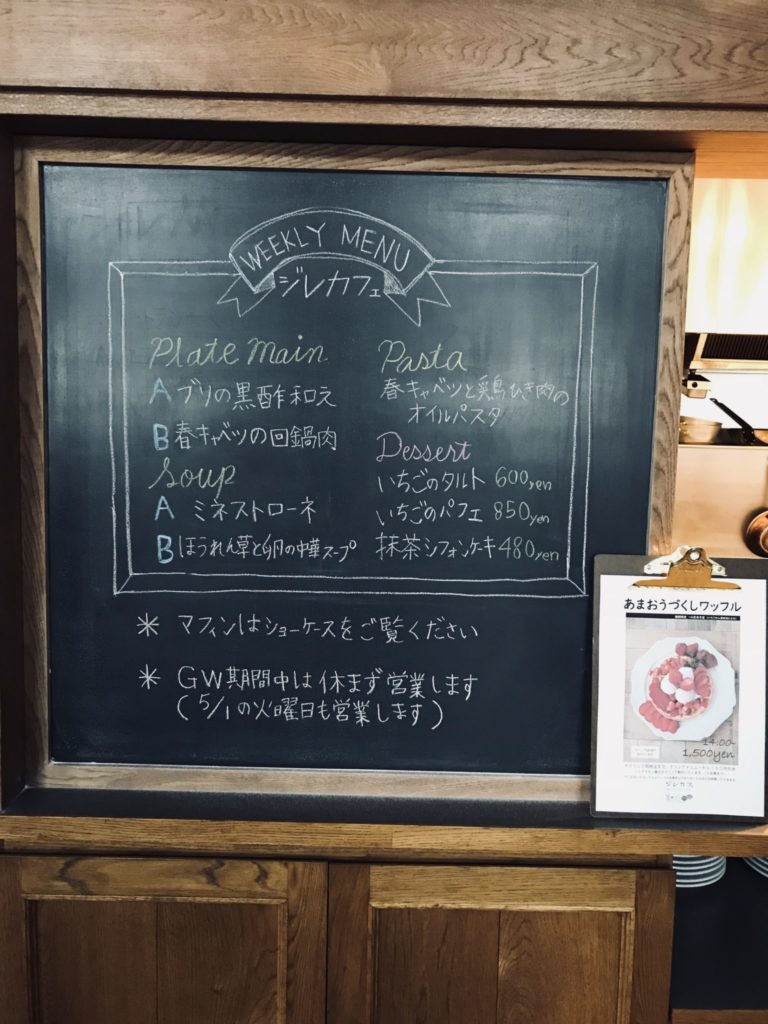 WEEKLY MENU
ジレカフェ
Plate Main
A ブリの黒酢和え
B 春キャベツの回鍋肉
Soup
A ミネストローネ
B ほうれん草と卵の中華スープ
Pasta
春キャベツと鶏ひき肉の
オイルパスタ
Dessert
いちごのタルト 600yen
いちごのパフェ 850yen
抹茶シフォンケーキ 480yen
* マフィンはショーケースをご覧ください
* GW期間中は休まず営業します
(5/1の火曜日も営業します)
あまおうづくしワッフル
14:00-
1,500yen
ジレカフェ